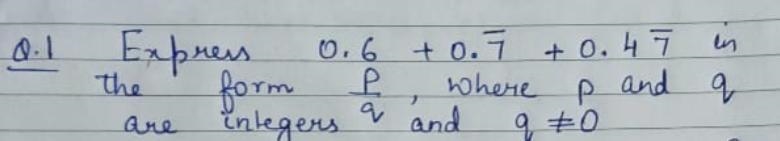 Q.1 Express 0.6 + 0.7̅ + 0.47̅ in
the form p/q, where p and q
are integers and q ≠ 0